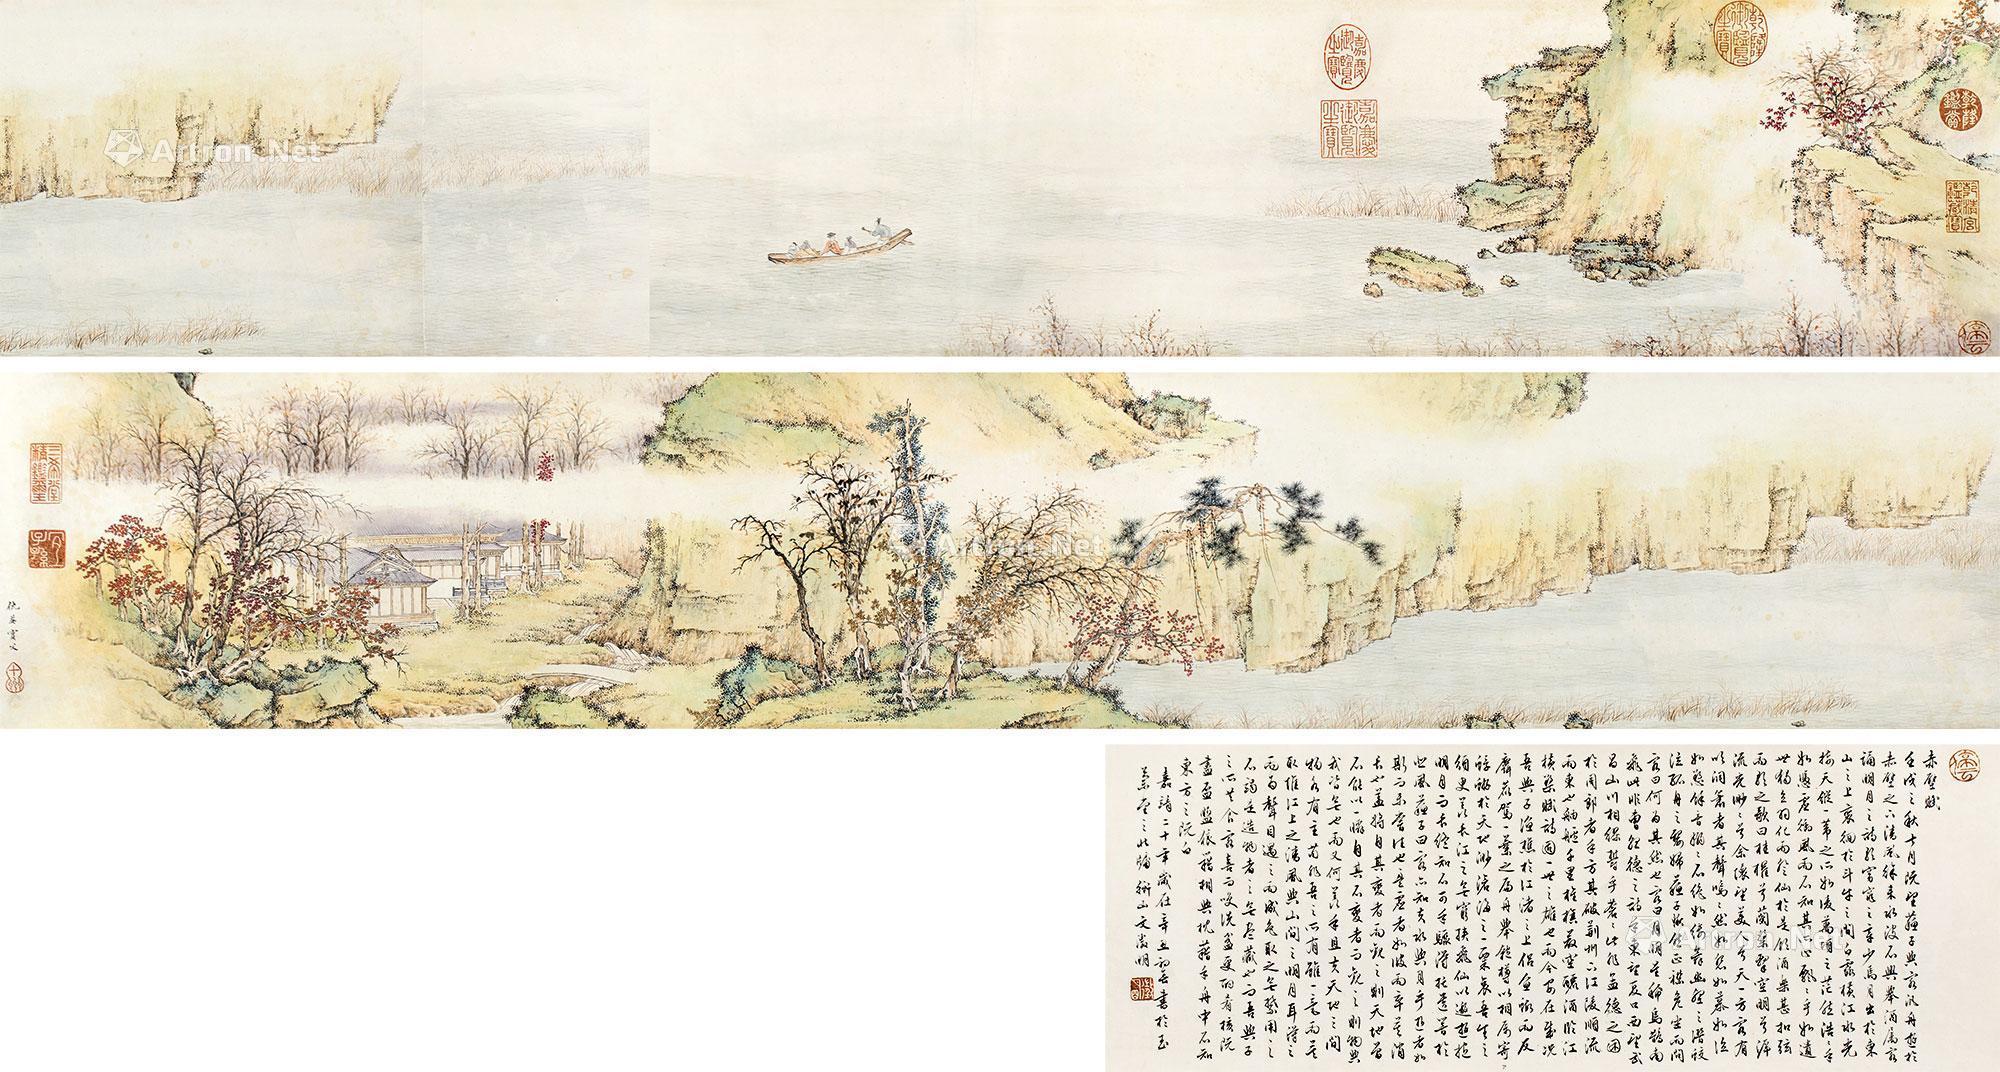 乾隆御覽之寶
乾隆鑑賞
嘉慶御覽之寶
嘉慶御覽之寶
Artron.Net
三希堂精鑑璽
宜子孫
仇英實父
十洲
Artron.Net
赤壁賦
壬戌之秋七月既望蘇子與客汎舟遊於
赤壁之下清風徐來水波不興舉酒屬客
誦明月之詩歌窈窕之章少焉月出於東
山之上裴徊於斗牛之間白露橫江水光
接天縱一葦之所如凌萬頃之茫然浩〻乎
如憑虛御風而不知其所止飄〻乎如遺
世獨立羽化而登仙於是飲酒樂甚扣弦
而歌之歌曰桂櫂兮蘭槳擊空明兮泝
流光渺〻兮余懷望美人兮天一方客有
吹洞簫者其聲嗚〻然如怨如慕如泣
如愬餘音嫋〻不絕如縷舞幽壑之潛蛟
泣孤舟之嫠婦蘇子愀然正襟危坐而問
客曰何為其然也客曰月明星稀烏鵲南
飛此非曹孟德之詩乎東望夏口西望武
昌山川相繆鬱乎蒼〻此非孟德之困
於周郎者乎方其破荊州下江陵順流
而東也舳艫千里旌旗蔽空釃酒臨江
橫槊賦詩固一世之雄也而今安在哉況
吾與子漁樵於江渚之上侶魚蝦而友
麋鹿駕一葉之扁舟舉匏樽以相屬寄
蜉蝣於天地渺滄海之一粟哀吾生之
須臾羨長江之無窮挾飛仙以遨遊抱
明月而長終知不可乎驟得托遺響於
悲風蘇子曰客亦知夫水與月乎逝者如
斯而未嘗往也盈虛者如彼而卒莫消
長也蓋將自其變者而觀之則天地曾
不能以一瞬自其不變者而觀之則物與
我皆無盡也而又何羨乎且夫天地之間
物各有主苟非吾之所有雖一毫而莫
取惟江上之清風與山間之明月耳得之
而為聲目遇之而成色取之無禁用之
不竭是造物者之無盡藏也而吾與子
之所共食客喜而笑洗盞更酌肴核既
盡盃盤狼藉相與枕藉乎舟中不知
東方之既白
嘉靖二十年歲在辛丑初春書於玉
蘭堂之北牖衡山文徵明